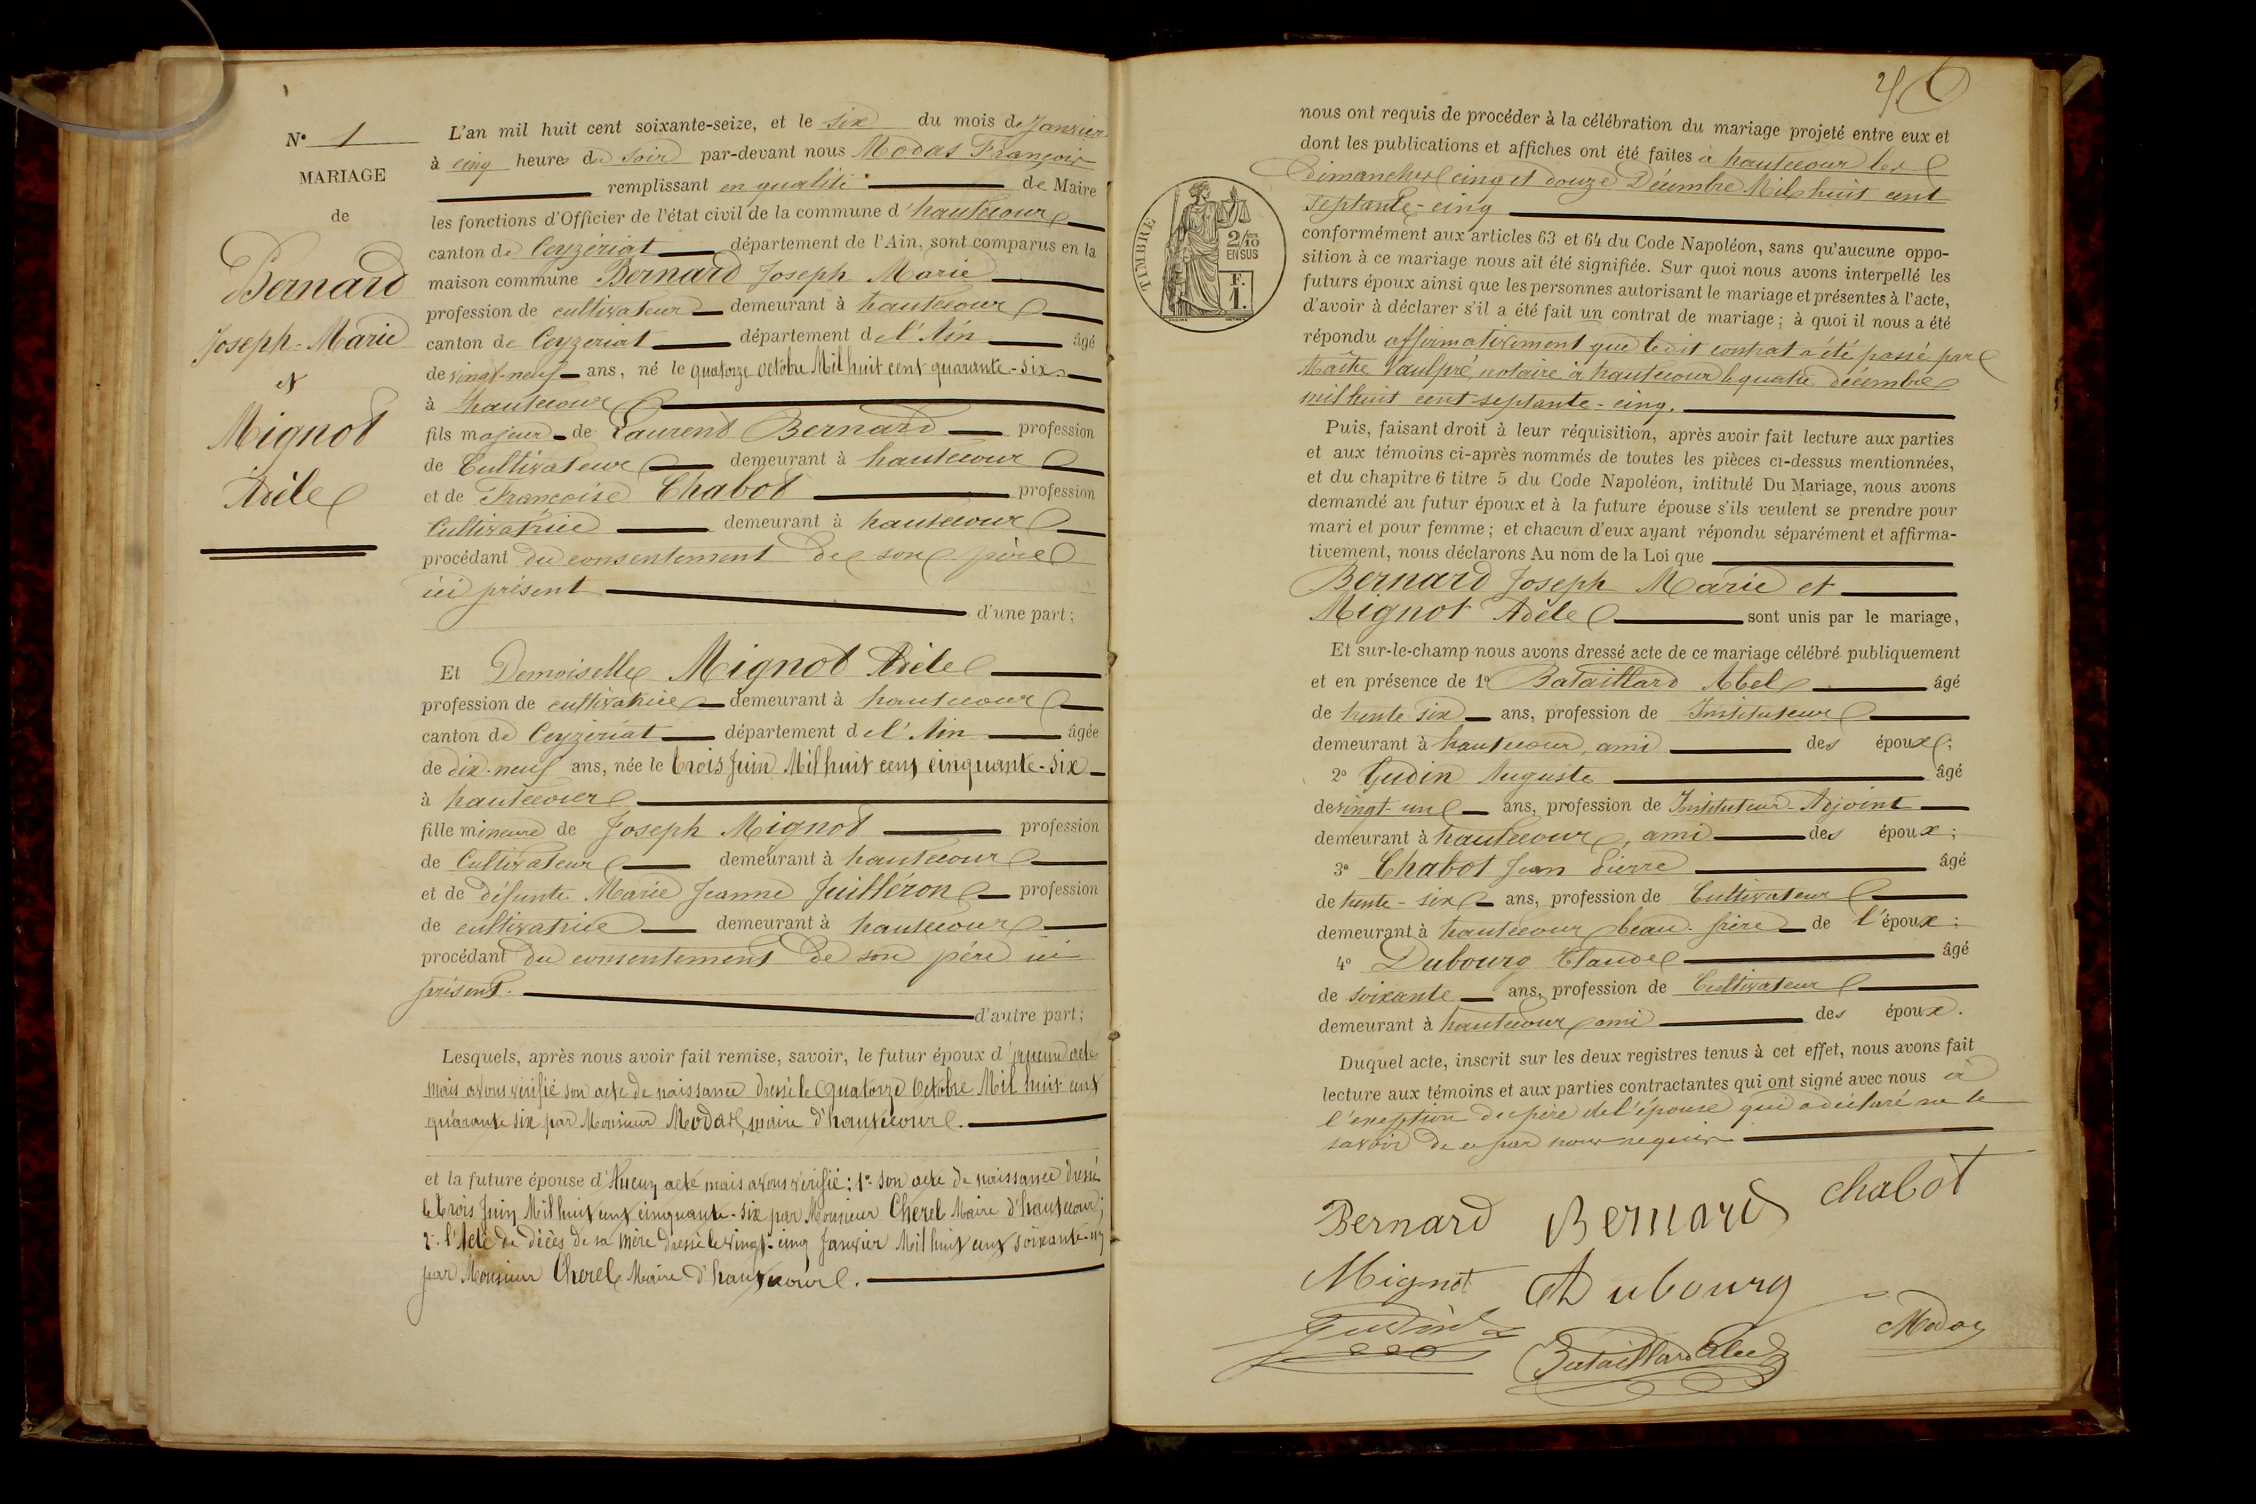 N° 1
MARIAGE
de
Bernard
Joseph-Marie
et
Mignot
Adèle
L'an mil huit cent soixante-seize, et le six du mois de Janvier
à cinq heures du soir par-devant nous Modas François
remplissant en qualité de Maire
les fonctions d'Officier de l'état civil de la commune d'hautecour
canton de Ceyzériat département de l'Ain, sont comparus en la
maison commune Bernard Joseph Marie
profession de cultivateur demeurant à hautecour
canton de Ceyzériat département de l'Ain âgé
de vingt-neuf ans, né le quatorze octobre Mil huit cent quarante-six
à hautecour
fils majeur de Laurent Bernard profession
de Cultivateur demeurant à hautecour
et de Françoise Chabot profession
Cultivatrice demeurant à hautecour
procédant du consentement de son père
ici présent
d'une part;
Et Demoiselle Mignot Adèle
profession de cultivatrice demeurant à hautecour
canton de Ceyzériat département de l'Ain âgée
de dix-neuf ans, née le trois Juin Mil huit cent cinquante-six
à hautecour
fille mineure de Joseph Mignot profession
de Cultivateur demeurant à hautecour
et de défunte Marie Jeanne Juilléron profession
de cultivatrice demeurant à hautecour
procédant du consentement de son père ici
présent.
d'autre part;
Lesquels, après nous avoir fait remise, savoir, le futur époux d'aucun acte
mais avons vérifié son acte de naissance dressé le quatorze Octobre Mil huit cent
quarante six par Monsieur Modas, maire d'hautecour.
et la future épouse d'Aucun acte mais avons vérifié: 1° son acte de naissance dressé
le trois Juin Mil huit cent cinquante-six par Monsieur Cherel Maire d'hautecour;
2° l'Acte de décès de sa mère dressé le vingt-cinq Janvier Mil huit cent soixante-
par Monsieur Cherel Maire d'hautecour.
nous ont requis de procéder à la célébration du mariage projeté entre eux et
dont les publications et affiches ont été faites à hautecour les
Dimanches cinq et douze Décembre Mil huit cent
septante-cinq
TIMBRE
2/10
EN SUS
F.
1.
conformément aux articles 63 et 64 du Code Napoléon, sans qu'aucune oppo-
sition à ce mariage nous ait été signifiée. Sur quoi nous avons interpellé les
futurs époux ainsi que les personnes autorisant le mariage et présentes à l'acte,
d'avoir à déclarer s'il a été fait un contrat de mariage; à quoi il nous a été
répondu affirmativement que ledit contrat a été passé par
Maître Vaulpré, notaire à hautecour le quatre décembre
mil huit cent septante-cinq.
Puis, faisant droit à leur réquisition, après avoir fait lecture aux parties
et aux témoins ci-après nommés de toutes les pièces ci-dessus mentionnées,
et du chapitre 6 titre 5 du Code Napoléon, intitulé Du Mariage, nous avons
demandé au futur époux et à la future épouse s'ils veulent se prendre pour
mari et pour femme; et chacun d'eux ayant répondu séparément et affirma-
tivement, nous déclarons Au nom de la Loi que
Bernard Joseph Marie et
Mignot Adèle sont unis par le mariage,
Et sur-le-champ nous avons dressé acte de ce mariage célébré publiquement
et en présence de 1° Bataillard Abel âgé
de trente six ans, profession de Instituteur
demeurant à hautecour, ami des époux;
2° Gudin Auguste âgé
de vingt-un ans, profession de Instituteur-Adjoint
demeurant à hautecour, ami des époux;
3° Chabot Jean Pierre âgé
de trente-six ans, profession de Cultivateur
demeurant à hautecour beau-frère de l'époux;
4° Dubourg Claude âgé
de soixante ans, profession de Cultivateur
demeurant à hautecour ami des époux.
Duquel acte, inscrit sur les deux registres tenus à cet effet, nous avons fait
lecture aux témoins et aux parties contractantes qui ont signé avec nous à
l'exeption du père de l'épouse qui a déclaré ne le
savoir de ce par nous requis
Bernard Bernard chabot
Mignot Dubourg
Gudin Bataillard Abel Modas